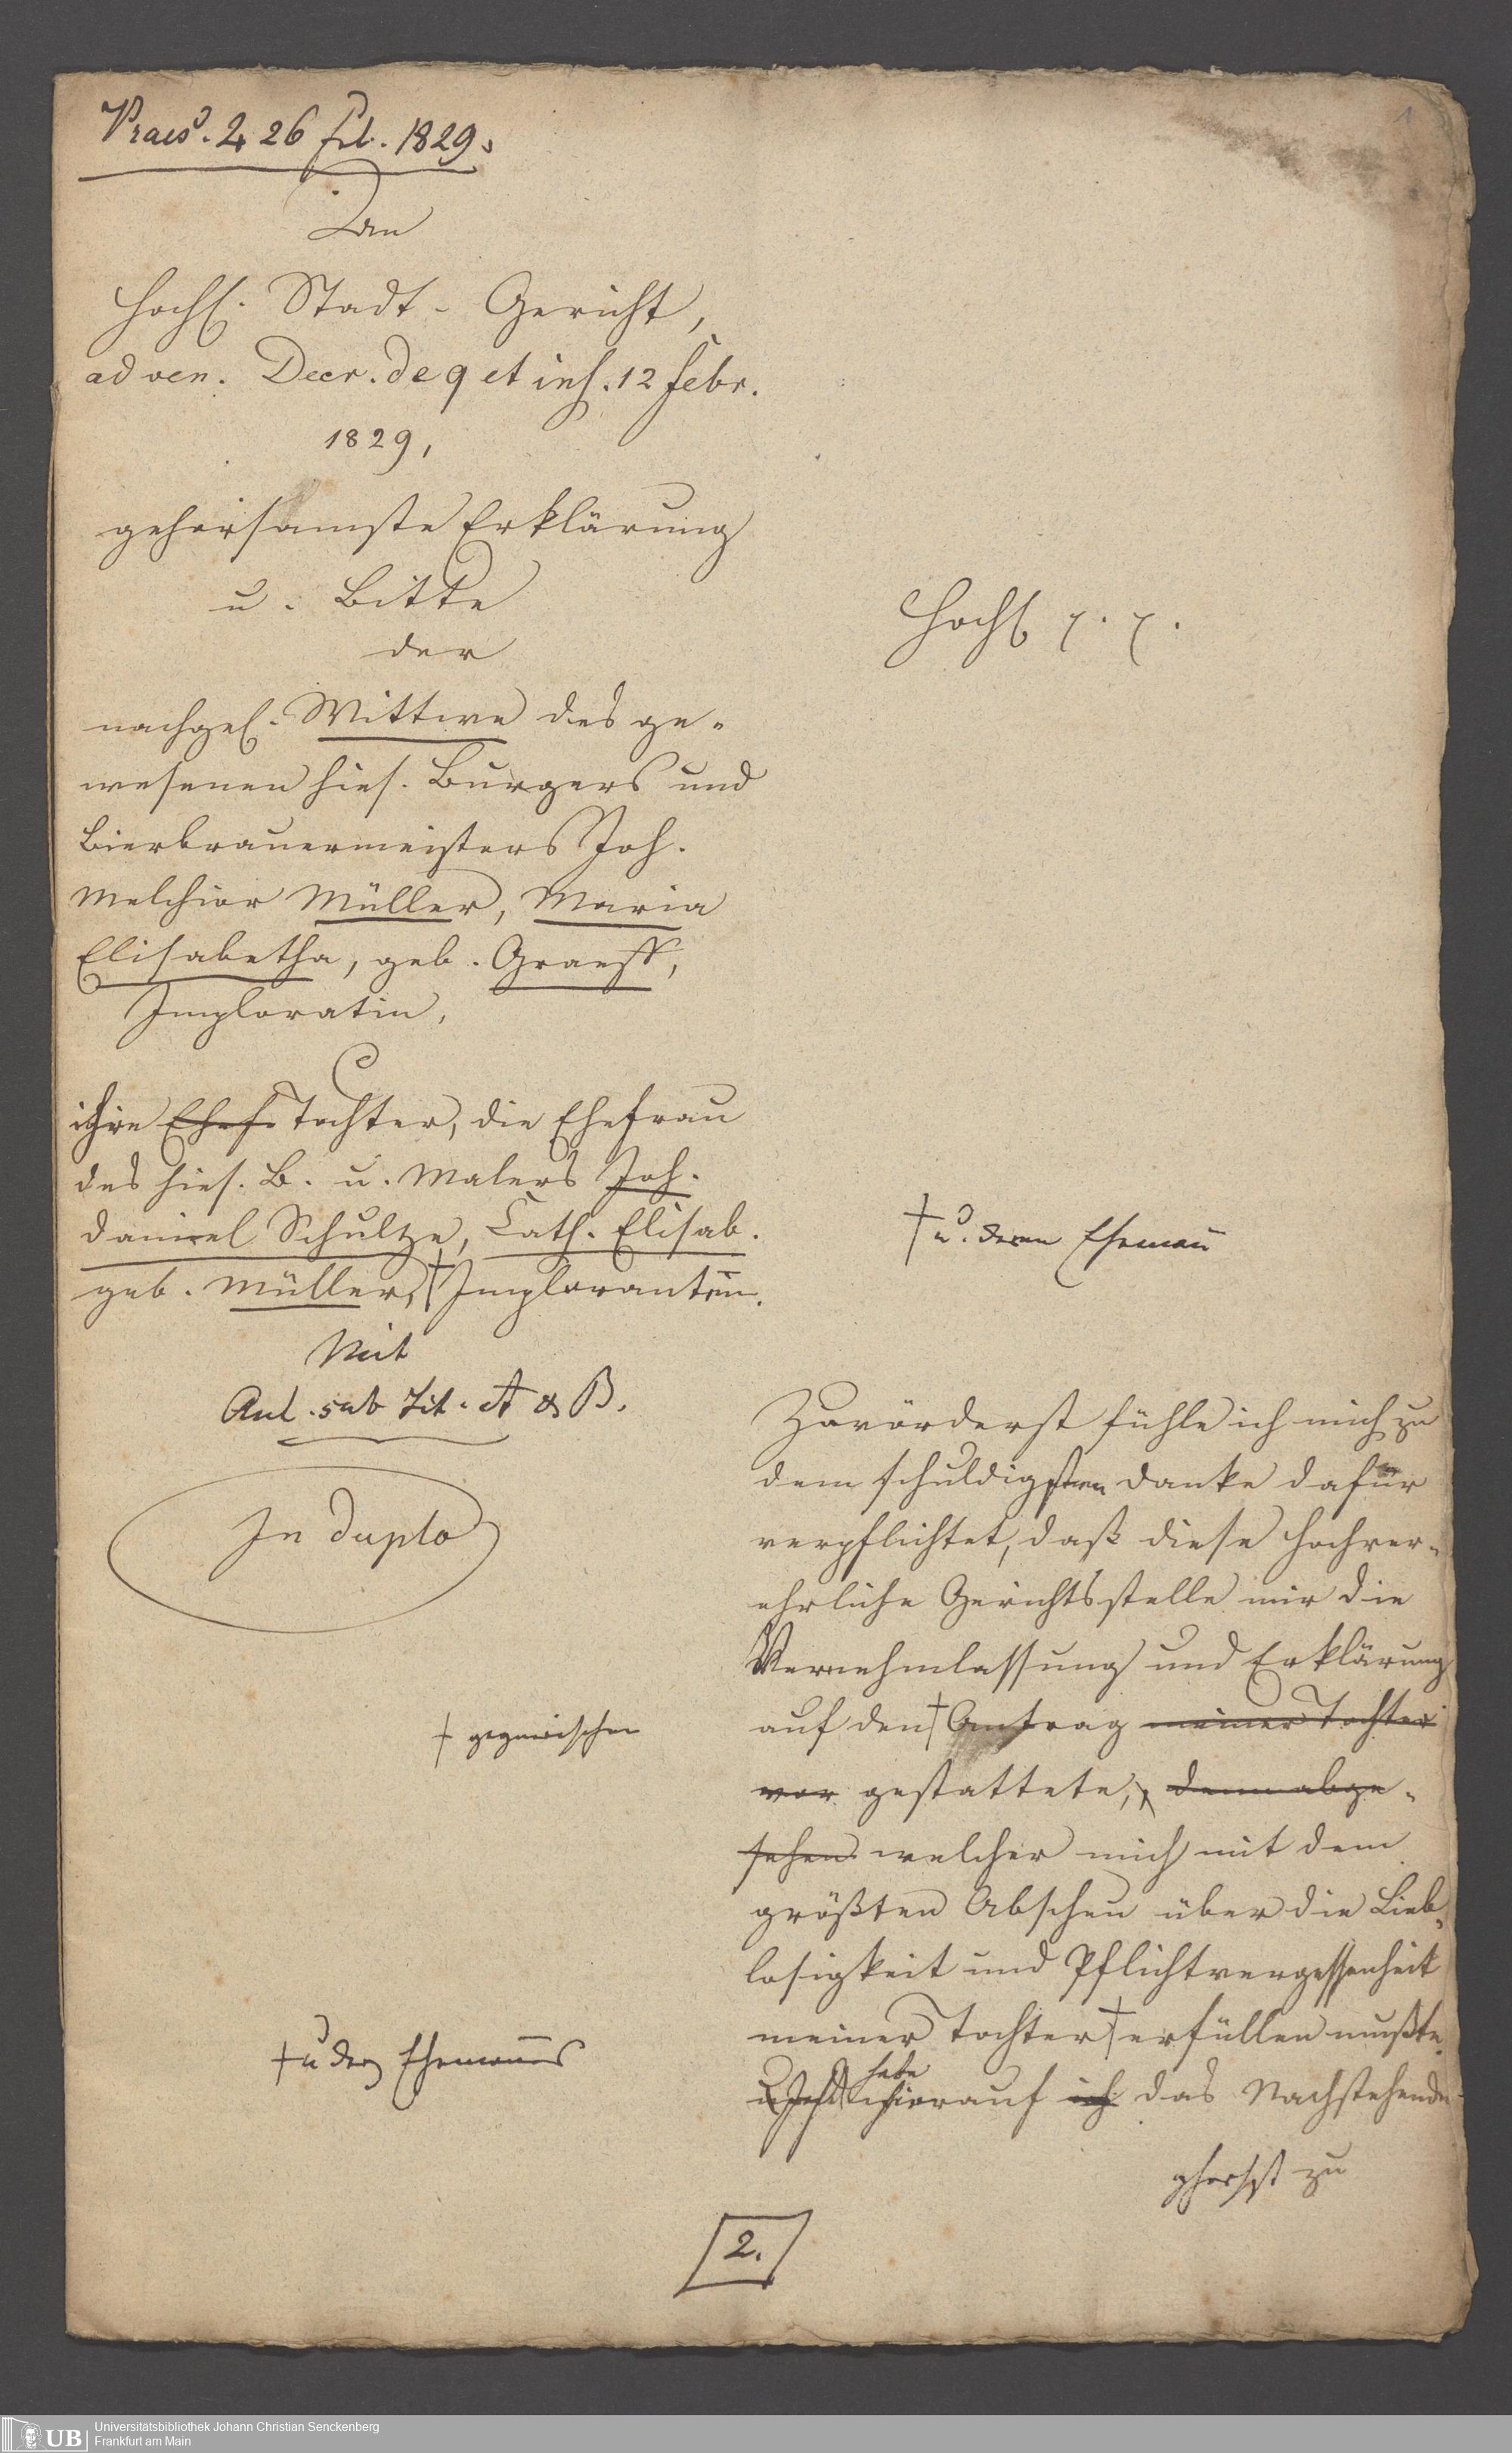 Praes. 26 feb. 1829.
1
An
Hochl. Stadt-Gericht,
ad ven. Decr. de 9 et ins. 12 Febr.
1829,
gehorsamste Erklärung
u. Bitte
der
nachgel. Wittwe des ge-
wesenen hies. Burgers und
Bierbrauermeisters Joh.
Melchior Müller, Maria
Elisabetha, geb. Graeff,
Imploratin,
ihre Ehef. Tochter, die Ehefrau
des hies. B. u. Malers Joh.
Daniel Schultze, Cath. Elisab.
geb. Müller, † Imploranten.
Mit
Anl. sub Lit. A & B.
In duplo
† gegnerischen
† u der Ehemannes
Hochl
† u. deren Ehemañ
Zuvörderst fühle ich mich zu
dem schuldigsten Danke dafür
verpflichtet, daß diese hochver-
ehrliche Gerichtsstelle mir die
Vernehmlassung und Erklärung
auf den † Antrag meiner Tochter
vor gestattete, denn abge-
sehen welcher mich mit dem
größten Abscheu über die Lieb-
losigkeit und Pflichtvergessenheit
meiner Tochter † erfüllen mußte.
habe
hierauf ich das Nachstehende
zu
2.
UB
Universitätsbibliothek Johann Christian Senckenberg
Frankfurt am Main